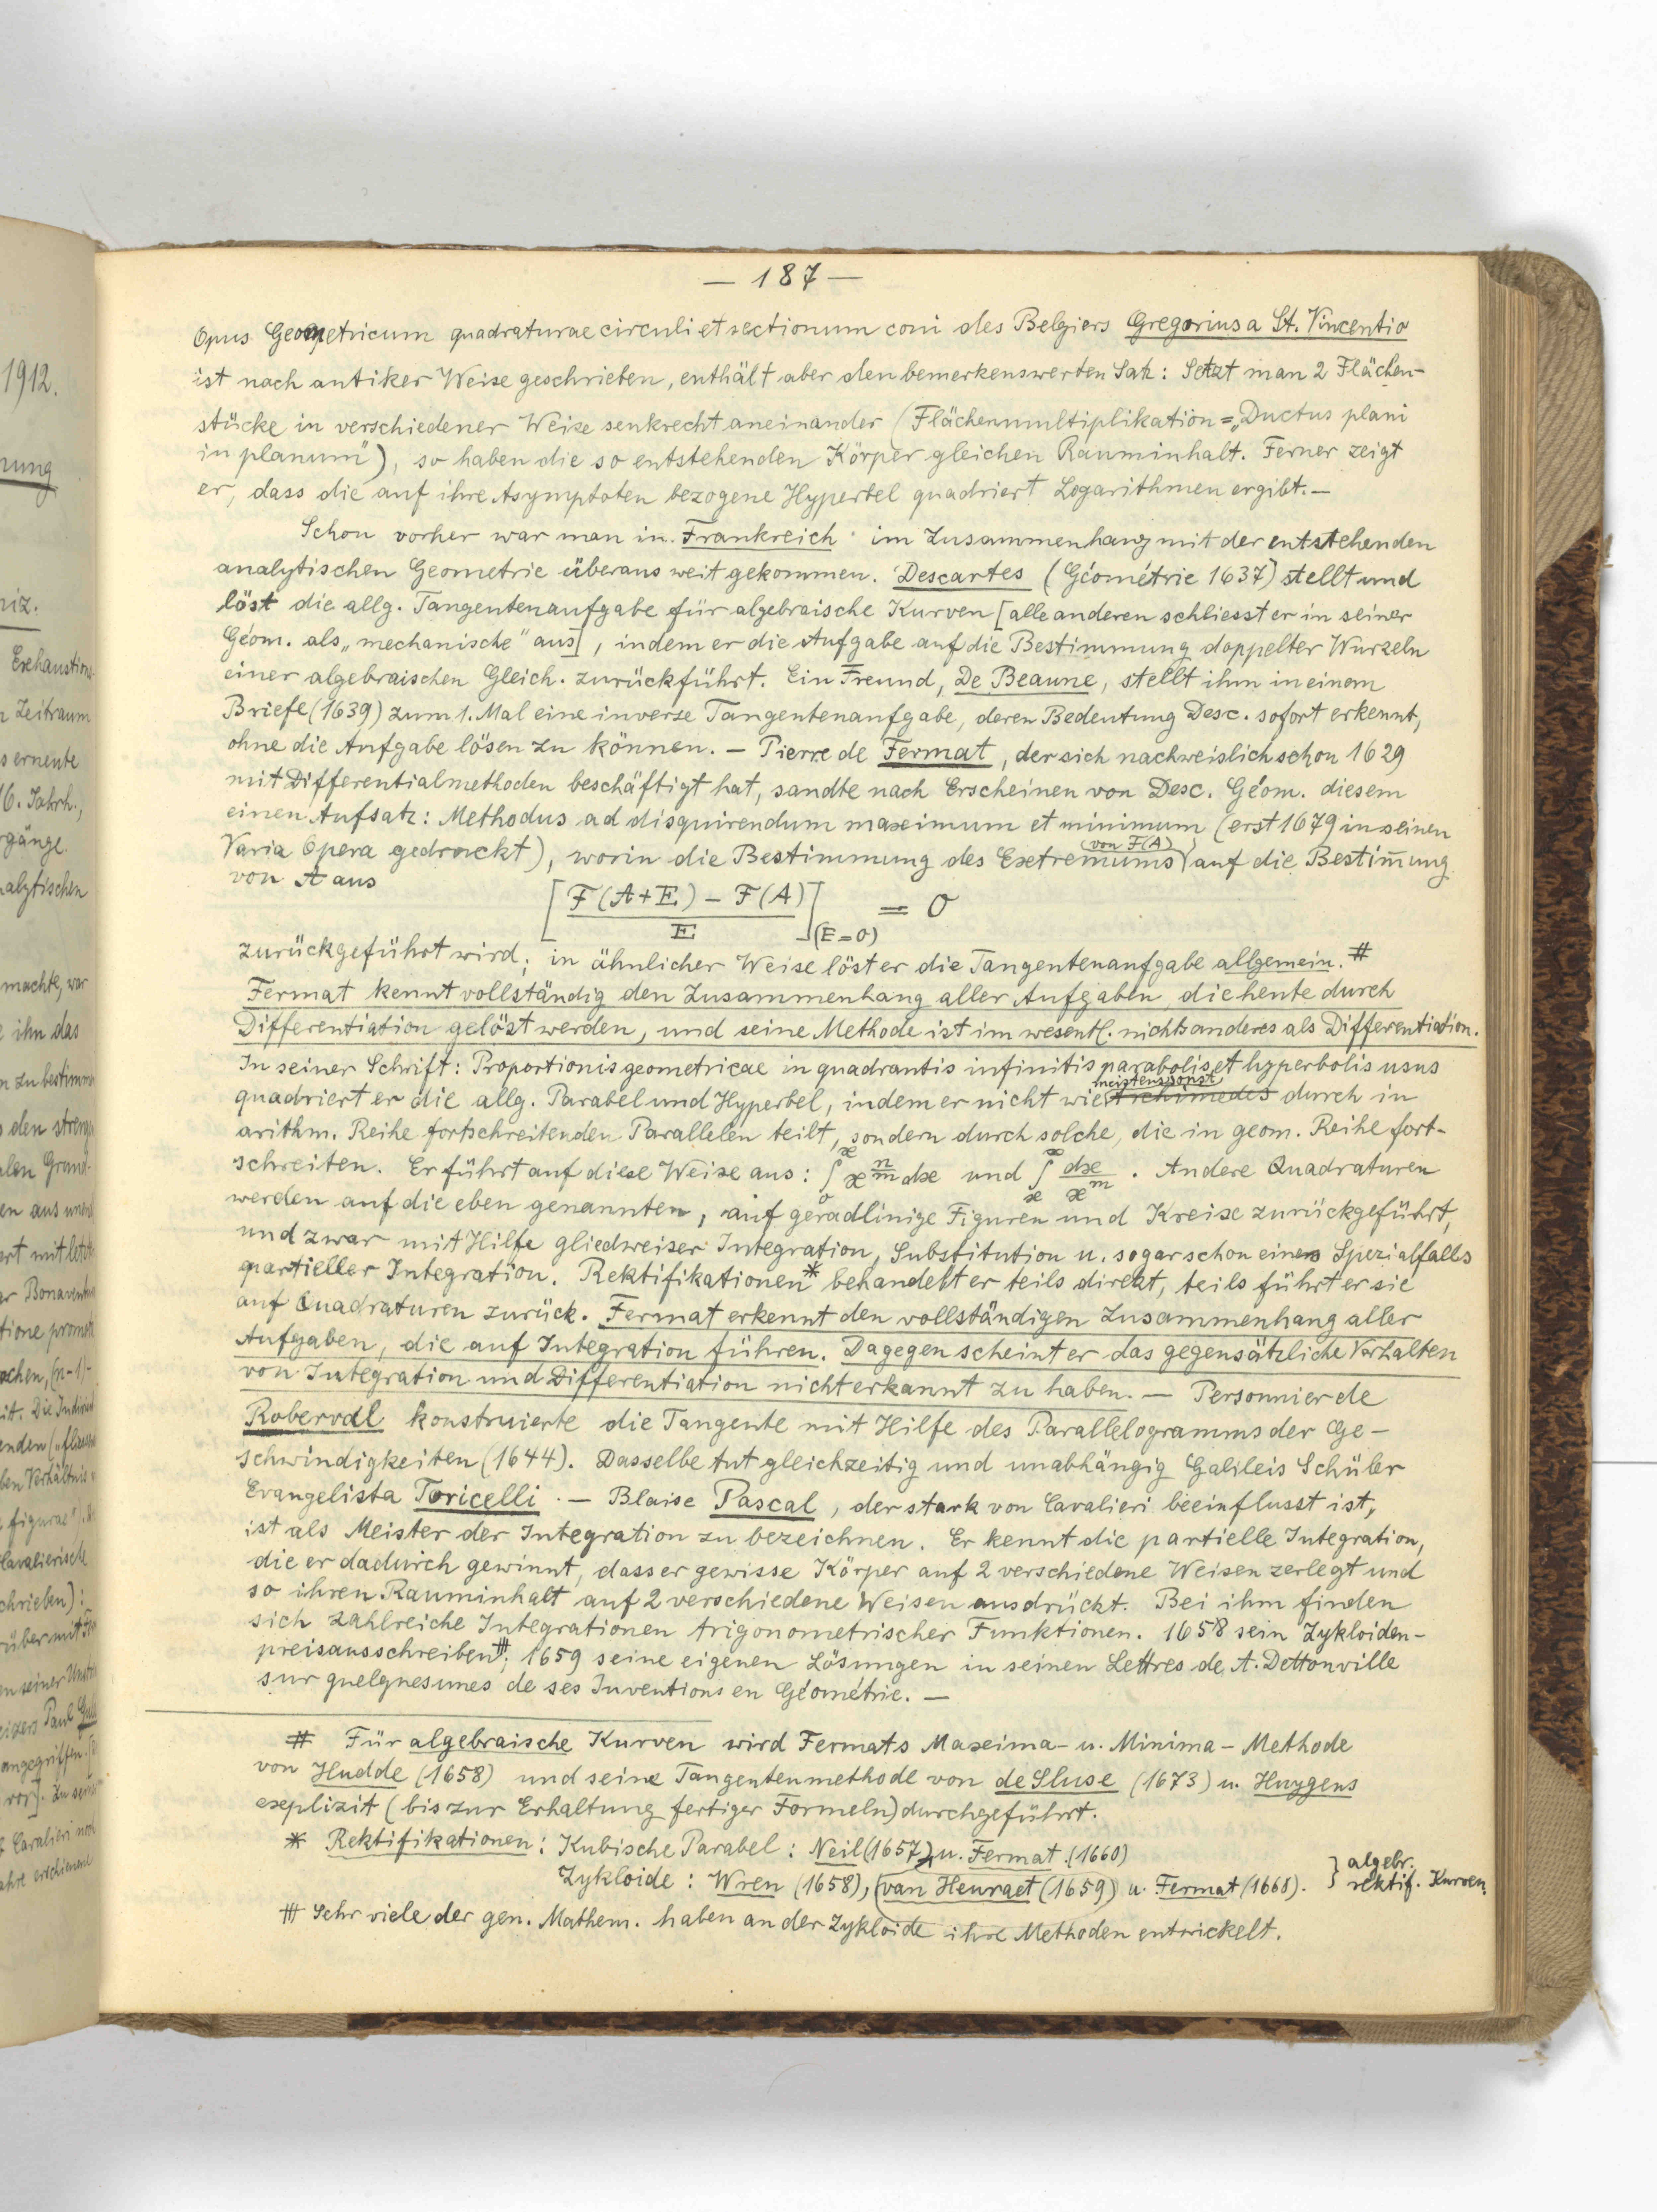 — 187 —
Opus Geometricum quadraturae circuli et sectionum coni des Belgiers Gregorius a St. Vincentio
ist nach antiker Weise geschrieben, enthält aber den bemerkenswerten Satz: Setzt man 2 Flächen-
stücke in verschiedener Weise senkrecht aneinander (Flächenmultiplikation = „Ductus plani
in planum"), so haben die so entstehenden Körper gleichen Rauminhalt. Ferner zeigt
er, dass die auf ihre Asymptoten bezogene Hyperbel quadriert Logarithmen ergibt. —
Schon vorher war man in Frankreich im Zusammenhang mit der entstehenden
analytischen Geometrie überaus weit gekommen. Descartes (Géométrie 1637) stellt und
löst die allg. Tangentenaufgabe für algebraische Kurven [alle anderen schliesst er in seiner
Géom. als „mechanische" aus], indem er die Aufgabe auf die Bestimmung doppelter Wurzeln
einer algebraischen Gleich. zurückführt. Ein Freund, De Beaune, stellt ihm in einem
Briefe (1639) zum 1. Mal eine inverse Tangentenaufgabe, deren Bedeutung Desc. sofort erkennt,
ohne die Aufgabe lösen zu können. — Pierre de Fermat, der sich nachweislich schon 1629
mit Differentialmethoden beschäftigt hat, sandte nach Erscheinen von Desc. Géom. diesem
einen Aufsatz: Methodus ad disquirendum maximum et minimum (erst 1679 in seinen
Varia Opera gedruckt), worin die Bestimmung des Extremums (von F(A)) auf die Bestim̄ung
von A aus
[F(A+E) – F(A) / E](E=0) = 0
zurückgeführt wird; in ähnlicher Weise löst er die Tangentenaufgabe allgemein. #
Fermat kennt vollständig den Zusammenhang aller Aufgaben, die heute durch
Differentiation gelöst werden, und seine Methode ist im wesentl. nichts anderes als Differentiation.
In seiner Schrift: Proportionis geometricae in quadrantis infinitis parabolis et hyperbolis usus
quadriert er die allg. Parabel und Hyperbel, indem er nicht wie meistens sonst Archimedes durch in
arithm. Reihe fortschreitenden Parallelen teilt, sondern durch solche, die in geom. Reihe fort-
schreiten. Er führt auf diese Weise aus: ∫₀ˣ x^(n/m) dx und ∫ₓ^∞ dx/x^m. Andere Quadraturen
werden auf die eben genannten, auf geradlinige Figuren und Kreise zurückgeführt,
und zwar mit Hilfe gliedweiser Integration, Substitution u. sogar schon eines Spezialfalls
partieller Integration. Rektifikationen* behandelt er teils direkt, teils führt er sie
auf Quadraturen zurück. Fermat erkennt den vollständigen Zusammenhang aller
Aufgaben, die auf Integration führen. Dagegen scheint er das gegensätzliche Verhalten
von Integration und Differentiation nicht erkannt zu haben. — Personnier de
Roberval konstruierte die Tangente mit Hilfe des Parallelogramms der Ge-
schwindigkeiten (1644). Dasselbe tut gleichzeitig und unabhängig Galileis Schüler
Evangelista Toricelli. — Blaise Pascal, der stark von Cavalieri beeinflusst ist,
ist als Meister der Integration zu bezeichnen. Er kennt die partielle Integration,
die er dadurch gewinnt, dass er gewisse Körper auf 2 verschiedene Weisen zerlegt und
so ihren Rauminhalt auf 2 verschiedene Weisen ausdrückt. Bei ihm finden
sich zahlreiche Integrationen trigonometrischer Funktionen. 1658 sein Zykloiden-
preisausschreiben ⧻; 1659 seine eigenen Lösungen in seinen Lettres de A. Dettonville
sur quelques unes de ses Inventions en Géométrie. —
# Für algebraische Kurven wird Fermats Maxima- u. Minima-Methode
von Hudde (1658) und seine Tangentenmethode von de Sluse (1673) u. Huygens
explizit (bis zur Erhaltung fertiger Formeln) durchgeführt.
* Rektifikationen: Kubische Parabel: Neil (1657) u. Fermat (1660)
Zykloide: Wren (1658), (van Heuraet (1659) u. Fermat (1668). } algebr. rektif. Kurven.
⧻ Sehr viele der gen. Mathem. haben an der Zykloide ihre Methoden entwickelt.
1912.
nung
niz.
Zeitraum
s erneute
16. Jahrh.,
rgänge.
nalytischen
machte, war
ihn das
er Bonavent